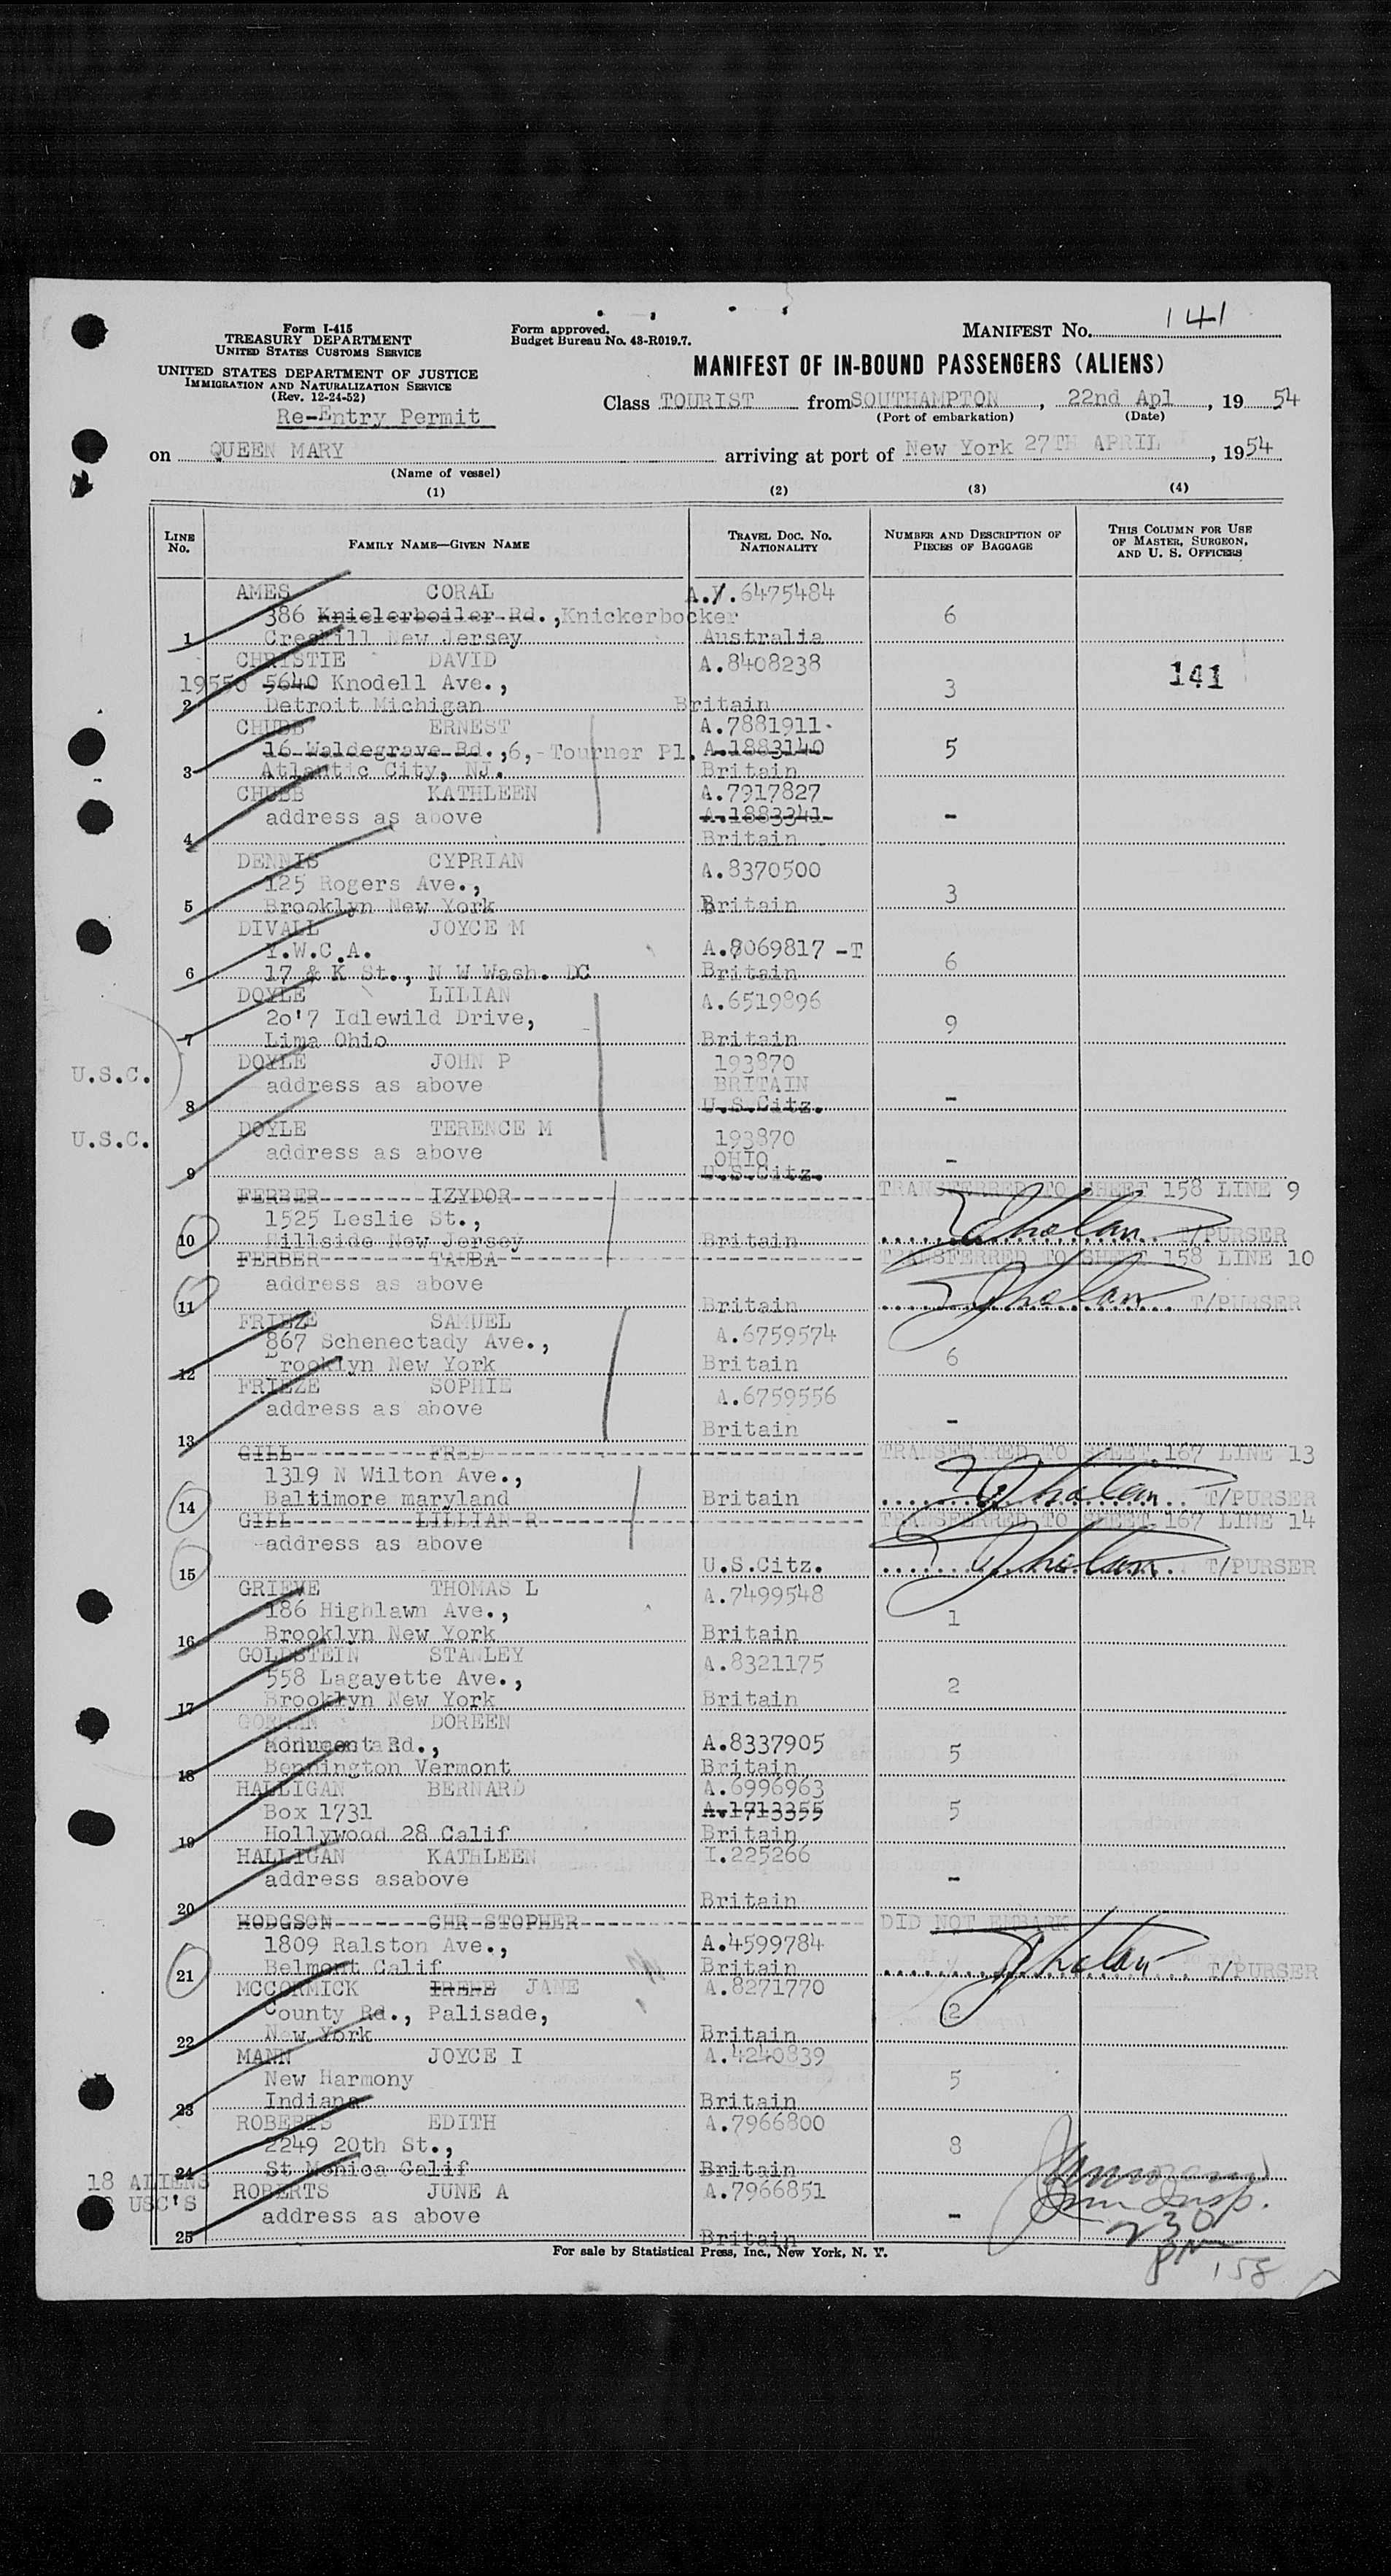 Form I-415
TREASURY DEPARTMENT
UNITED STATES CUSTOMS SERVICE
UNITED STATES DEPARTMENT OF JUSTICE
IMMIGRATION AND NATURALIZATION SERVICE
(Rev. 12-24-52)
Re-Entry Permit
Form approved.
Budget Bureau No. 43-R019.7.
MANIFEST NO. 141
MANIFEST OF IN-BOUND PASSENGERS (ALIENS)
Class TOURIST from SOUTHAMPTON, 22nd Apl, 1954
(Port of embarkation) (Date)
on QUEEN MARY arriving at port of New York 27TH APRIL, 1954
(Name of vessel)
(1) (2) (3) (4)
LINE No. FAMILY NAME—GIVEN NAME TRAVEL DOC. NO. NATIONALITY NUMBER AND DESCRIPTION OF PIECES OF BAGGAGE THIS COLUMN FOR USE OF MASTER, SURGEON, AND U. S. OFFICERS
AMES CORAL A.6475484
386 Knielerboiler Rd.,Knickerbocker 6
1 Creskill New Jersey Australia
CHRISTIE DAVID A.8408238
19550 5640 Knodell Ave., 3 141
2 Detroit Michigan Britain
CHUBB ERNEST A.7881911
16 Waldegrave Rd.,6,-Tourner Pl. A.1883140 5
3 Atlantic City, NJ. Britain
CHUBB KATHLEEN A.7917827
address as above A.1883341 -
4 Britain
DENNIS CYPRIAN A.8370500
125 Rogers Ave., 3
5 Brooklyn New York Britain
DIVALL JOYCE M
Y.W.C.A. A.8069817 -T 6
6 17 & K St., N W Wash. DC Britain
DOYLE LILIAN A.6519896
2o'7 Idlewild Drive, 9
7 Lima Ohio Britain
DOYLE JOHN P 193870
U.S.C. address as above BRITAIN -
8 U.S.Citz.
DOYLE TERENCE M 193870
U.S.C. address as above OHIO -
9 U.S.Citz.
FERBER IZYDOR TRANSFERRED TO SHEET 158 LINE 9
1525 Leslie St.,
10 Hillside New Jersey Britain T/PURSER
FERBER TAUBA TRANSFERRED TO SHEET 158 LINE 10
address as above
11 Britain T/PURSER
FRIEZE SAMUEL A.6759574
867 Schenectady Ave., 6
12 Brooklyn New York Britain
FRIEZE SOPHIE A.6759556
address as above -
13 Britain
GILL FRED TRANSFERRED TO SHEET 167 LINE 13
1319 N Wilton Ave.,
14 Baltimore maryland Britain T/PURSER
GILL LILLIAN R TRANSFERRED TO SHEET 167 LINE 14
address as above
15 U.S.Citz. T/PURSER
GRIEVE THOMAS L A.7499548
186 Highlawn Ave., 1
16 Brooklyn New York Britain
GOLDSTEIN STANLEY A.8321175
558 Lagayette Ave., 2
17 Brooklyn New York Britain
DOREEN
Monument Rd., A.8337905 5
18 Bennington Vermont Britain
HALLIGAN BERNARD A.6996963
Box 1731 A.1713355 5
19 Hollywood 28 Calif Britain
HALLIGAN KATHLEEN I.225266
address asabove -
20 Britain
HODGSON CHR STOPHER DID NOT EMBARK
1809 Ralston Ave., A.4599784
21 Belmont Calif Britain T/PURSER
MCCORMICK IRENE JANE A.8271770
County Rd., Palisade, 2
22 New York Britain
MANN JOYCE I A.4240839
New Harmony 5
23 Indiana Britain
ROBERTS EDITH A.7966800
2249 20th St., 8
24 St Monica Calif Britain
18 ALIENS
USC'S
ROBERTS JUNE A A.7966851
address as above -
25 Britain
Imm Insp.
230
PM
158
For sale by Statistical Press, Inc., New York, N. Y.